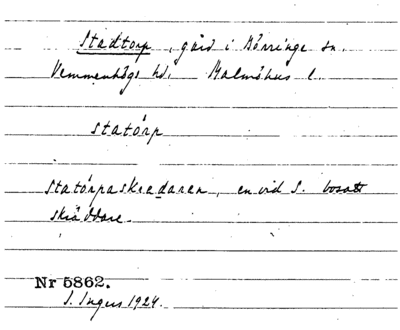 Stadtorp, gård i Börringe sn.
Vemmenhögs hd. Malmöhus l.
statórp
statórpaskredaren, en vid S. bosatt
skräddare.
Nr 5862.
S. Ingers 1924.